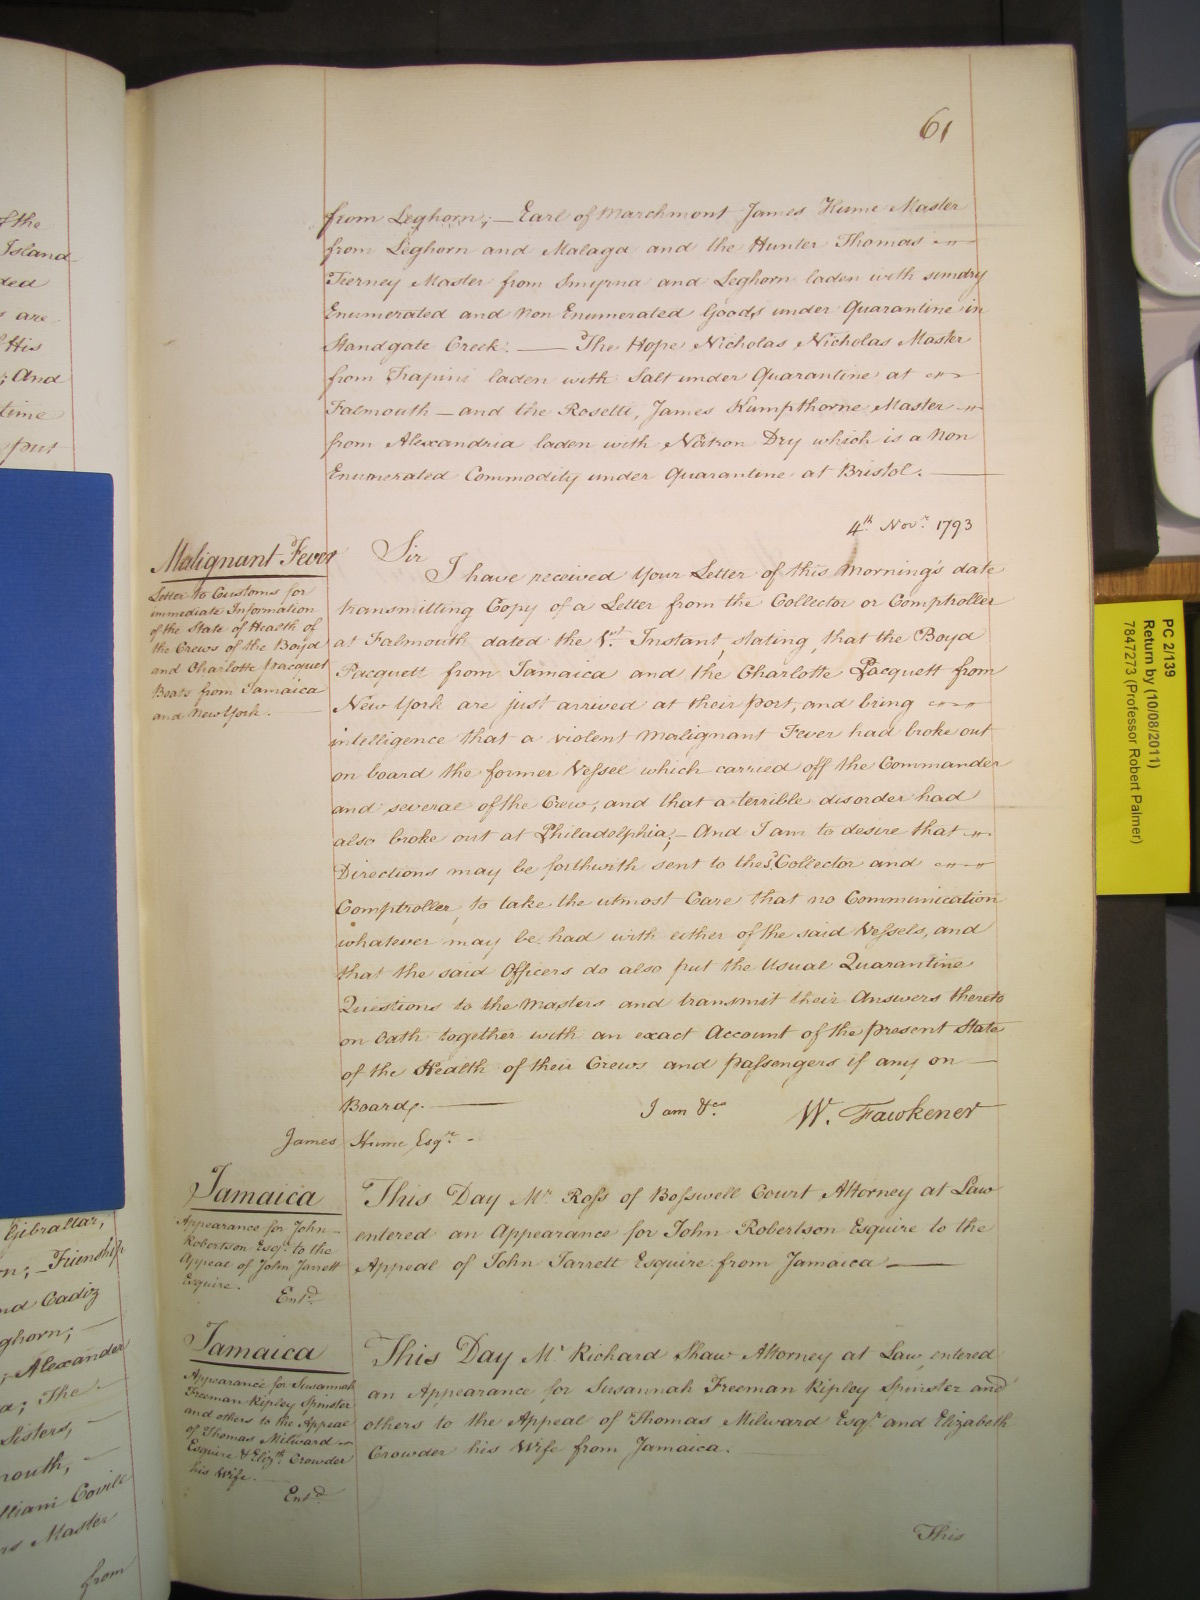 61
from Leghorn; — Earl of Marchmont James Hume Master
from Leghorn and Malaga and the Hunter Thomas
Tierney Master from Smyrna and Leghorn laden with sundry
Enumerated and Non Enumerated Goods under Quarantine in
Standgate Creek. — The Hope Nicholas Nicholas Master
from Trapini laden with Salt under Quarantine at
Falmouth — and the Rosetti, James Kumpthorne Master
from Alexandria laden with Natron Dry which is a Non
Enumerated Commodity under Quarantine at Bristol. —
4th Novr. 1793
Malignant Fever
Letter to Customs for
immediate Information
of the State of Health of
the Crews of the Boyd
and Charlotte Pacquet
Boats from Jamaica
and New York.
Sir
I have received Your Letter of this Morning's date
transmitting Copy of a Letter from the Collector or Comptroller
at Falmouth dated the 1st. Instant, stating, that the Boyd
Pacquett from Jamaica and the Charlotte Pacquett from
New York are just arrived at their port, and bring
intelligence that a violent Malignant Fever had broke out
on board the former Vessel which carried off the Commander
and several of the Crew, and that a terrible disorder had
also broke out at Philadelphia; — And I am to desire that
Directions may be forthwith sent to the sd. Collector and
Comptroller, to take the utmost Care that no Communication
whatever may be had with either of the said Vessels, and
that the said Officers do also put the Usual Quarantine
Questions to the Masters and transmit their Answers thereto
on Oath together with an exact Account of the present State
of the Health of their Crews and passengers if any on —
Board. —
I am &ca W. Fawkener
James Hume Esqre. -
Jamaica
Appearance for John
Robertson Esqr. to the
Appeal of John Jarrett
Esquire.
Entd.
This Day Mr. Ross of Bosswell Court Attorney at Law
entered an Appearance for John Robertson Esquire to the
Appeal of John Jarrett Esquire from Jamaica —
Jamaica
Appearance for Susannah
Freeman Ripley Spinster
and others to the Appeal
of Thomas Milward
Esquire & Elizth. Crowder
his Wife. —
Entd.
This Day Mr. Richard Shaw Attorney at Law entered
an Appearance for Susannah Freeman Ripley Spinster and
others to the Appeal of Thomas Milward Esqr. and Elizabeth
Crowder his Wife from Jamaica.
This
f the
Island
ded
s are
His
; And
time
put
Gibraltar,
n; — Friendship
nd Cadiz
ghorn; —
; Alexander
a; The —
Sisters, —
mouth, —
lliam Covill
rs Master
from
PC 2/139
Return by (10/08/2011)
7847273 (Professor Robert Palmer)